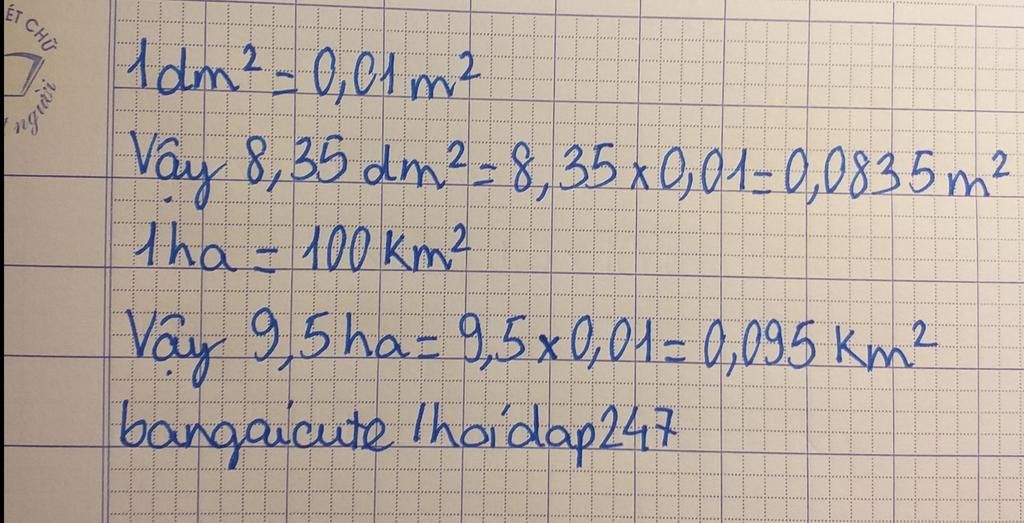 ÉT CHỮ
người
1dm² = 0,01 m²
Vậy 8,35 dm² = 8,35 x 0,01 = 0,0835 m²
1ha = 100 Km²
Vậy 9,5 ha = 9,5 x 0,01 = 0,095 Km²
bangaicute /hoidap247